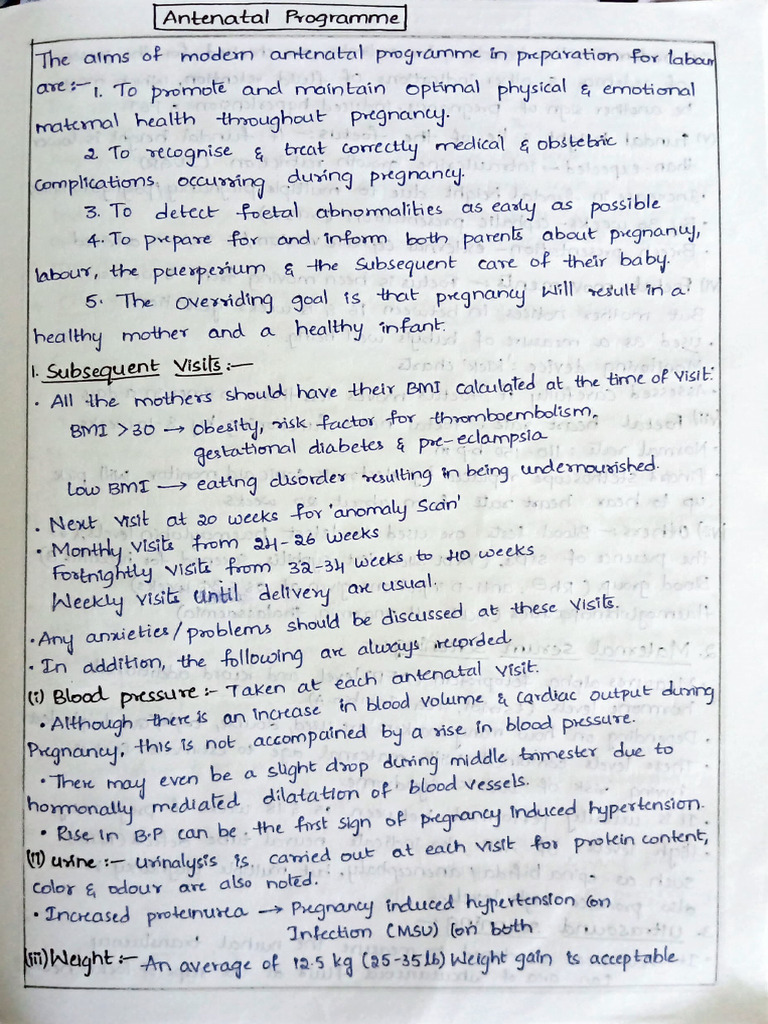 Antenatal Programme
The aims of modern antenatal programme in preparation for labour
are:- 1. To promote and maintain optimal physical & emotional
maternal health throughout pregnancy.
2. To recognise & treat correctly medical & obstetric
complications occurring during pregnancy.
3. To detect foetal abnormalities as early as possible
4. To prepare for and inform both parents about pregnancy,
labour, the puerperium & the Subsequent care of their baby.
5. The overriding goal is, that pregnancy will result in a
healthy mother and a healthy infant.
1. Subsequent Visits:-
• All the mothers should have their BMI, calculated at the time of visit.
BMI >30 → obesity, risk factor for thromboembolism,
gestational diabetes & pre-eclampsia
Low BMI → eating disorder resulting in being undernourished.
• Next visit at 20 weeks for 'anomaly Scan'
• Monthly visits from 24-26 weeks
Fortnightly visits from 32-34 weeks to 40 weeks
Weekly visits until delivery are usual.
• Any anxieties/problems should be discussed at these visits.
• In addition, the following are always recorded.
(i) Blood pressure:- Taken at each antenatal visit.
• Although there is an increase in blood volume & cardiac output during
Pregnancy, this is not accompained by a rise in blood pressure.
• There may even be a slight drop during middle trimester due to
hormonally mediated dilatation of blood vessels.
• Rise in B.P can be the first sign of pregnancy induced hypertension.
(ii) urine:- urinalysis is carried out at each visit for protein content,
color & odour are also noted.
• Increased proteinurea → Pregnancy induced hypertension (on
Infection (MSU) (on both
(iii) Weight:- An average of 12.5 kg (25-35 lb) Weight gain is acceptable